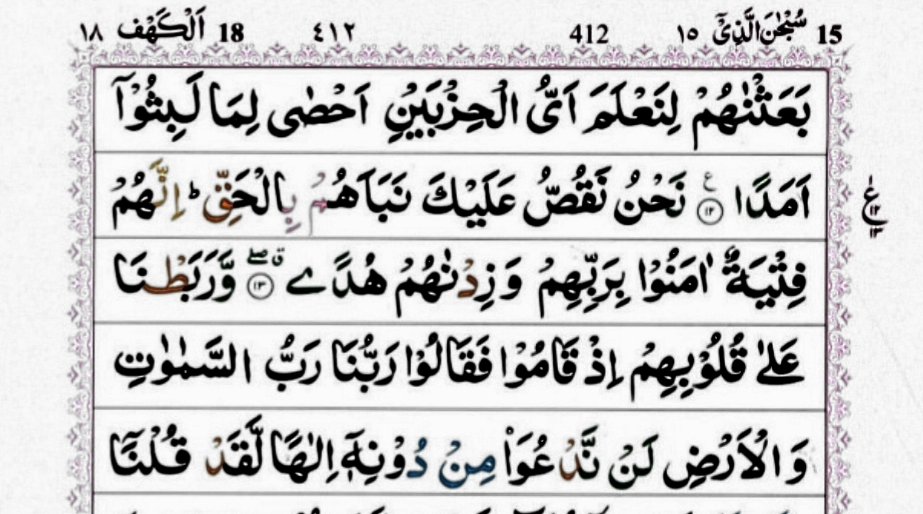 15 سُبْحٰنَ الَّذِیْۤ ١٥ 412 ٤١٢ 18 اَلْكَهْف ١٨
بَعَثْنٰهُمْ لِنَعْلَمَ اَیُّ الْحِزْبَیْنِ اَحْصٰی لِمَا لَبِثُوْۤا
اَمَدًا ۧ۝١٢ نَحْنُ نَقُصُّ عَلَیْكَ نَبَاَهُمْ بِالْحَقِّ ؕ اِنَّهُمْ
فِتْیَةٌ اٰمَنُوْا بِرَبِّهِمْ وَزِدْنٰهُمْ هُدًی ۝١٣ۖۗ وَّرَبَطْنَا
عَلٰی قُلُوْبِهِمْ اِذْ قَامُوْا فَقَالُوْا رَبُّنَا رَبُّ السَّمٰوٰتِ
وَالْاَرْضِ لَنْ نَّدْعُوَا۠ مِنْ دُوْنِهٖۤ اِلٰهًا لَّقَدْ قُلْنَاۤ